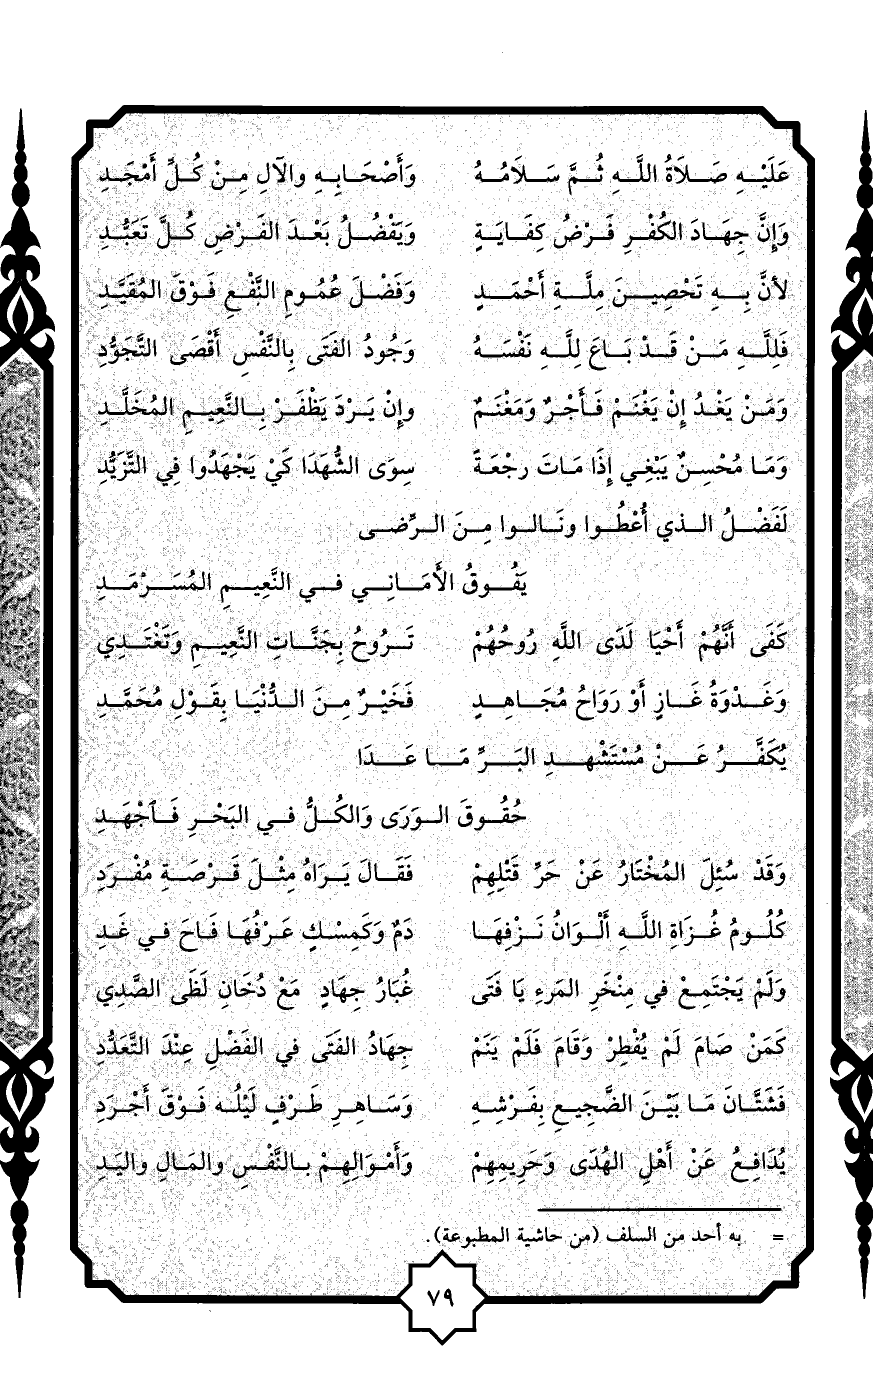 عَلَيْهِ صَلَاةُ اللَّهِ ثُمَّ سَلَامُهُ وَأَصْحَابِهِ والآلِ مِنْ كُلِّ أَمْجَدِ
وَإِنَّ جِهَادَ الكُفْرِ فَرْضُ كِفَايَةٍ وَيَفْضُلُ بَعْدَ الفَرْضِ كُلَّ تَعَبُّدِ
لأنَّ بِهِ تَحْصِينَ مِلَّةِ أَحْمَدٍ وَفَضْلَ عُمُومِ النَّفْعِ فَوْقَ المُقَيَّدِ
فَلِلَّهِ مَنْ قَدْ بَاعَ لِلَّهِ نَفْسَهُ وَجُودُ الفَتَى بِالنَّفْسِ أَقْصَى التَّجَوُّدِ
وَمَنْ يَغْدُ إِنْ يَغْنَمْ فَأَجْرٌ وَمَغْنَمٌ وإِنْ يَرْدَ يَظْفَرْ بِالنَّعِيمِ المُخَلَّدِ
وَمَا مُحْسِنٌ يَبْغِي إِذَا مَاتَ رجْعَةً سِوَى الشُّهَدَا كَيْ يَجْهَدُوا فِي التَّزَيُّدِ
لَفَضْلُ الذي أُعْطُوا ونَالوا مِنَ الرِّضى
يَفُوقُ الأَمَانِي في النَّعِيمِ المُسَرْمَدِ
كَفَى أَنَّهُمْ أَحْيَا لَدَى اللَّهِ رُوحُهُمْ تَرُوحُ بِجَنَّاتِ النَّعِيمِ وَتَغْتَدِي
وَغَدْوَةُ غَازٍ أَوْ رَوَاحُ مُجَاهِدٍ فَخَيْرٌ مِنَ الدُّنْيَا بِقَوْلِ مُحَمَّدِ
يُكَفَّرُ عَنْ مُسْتَشْهِدِ البَرِّ مَا عَدَا
حُقُوقَ الوَرَى وَالكُلُّ في البَحْرِ فَاَجْهَدِ
وَقَدْ سُئِلَ المُخْتَارُ عَنْ حَرِّ قَتْلِهِمْ فَقَالَ يَرَاهُ مِثْلَ قَرْصَةِ مُفْرَدِ
كُلُومُ غُزَاةِ اللَّهِ أَلْوَانُ نَزْفِهَا دَمٌ وَكَمِسْكٍ عَرْفُهَا فَاحَ في غَدِ
وَلَمْ يَجْتَمِعْ في مِنْخَرِ المَرءِ يَا فَتَى غُبَارُ جِهَادٍ مَعْ دُخَانِ لَظَى الصَّدِي
كَمَنْ صَامَ لَمْ يُفْطِرْ وَقَامَ فَلَمْ يَنَمْ جِهَادُ الفَتَى في الفَضْلِ عِنْدَ التَّعَدُّدِ
فَشَتَّانَ مَا بَيْنَ الضَّجِيعِ بِفَرْشِهِ وَسَاهِرِ طَرْفٍ لَيْلُه فَوْقَ أَجْرَدِ
يُدَافِعُ عَنْ أَهْلِ الهُدَى وَحَرِيمِهِمْ وَأَمْوَالِهِمْ بالنَّفْسِ والمَالِ واليَدِ
= به أحد من السلف (من حاشية المطبوعة).
٧٩